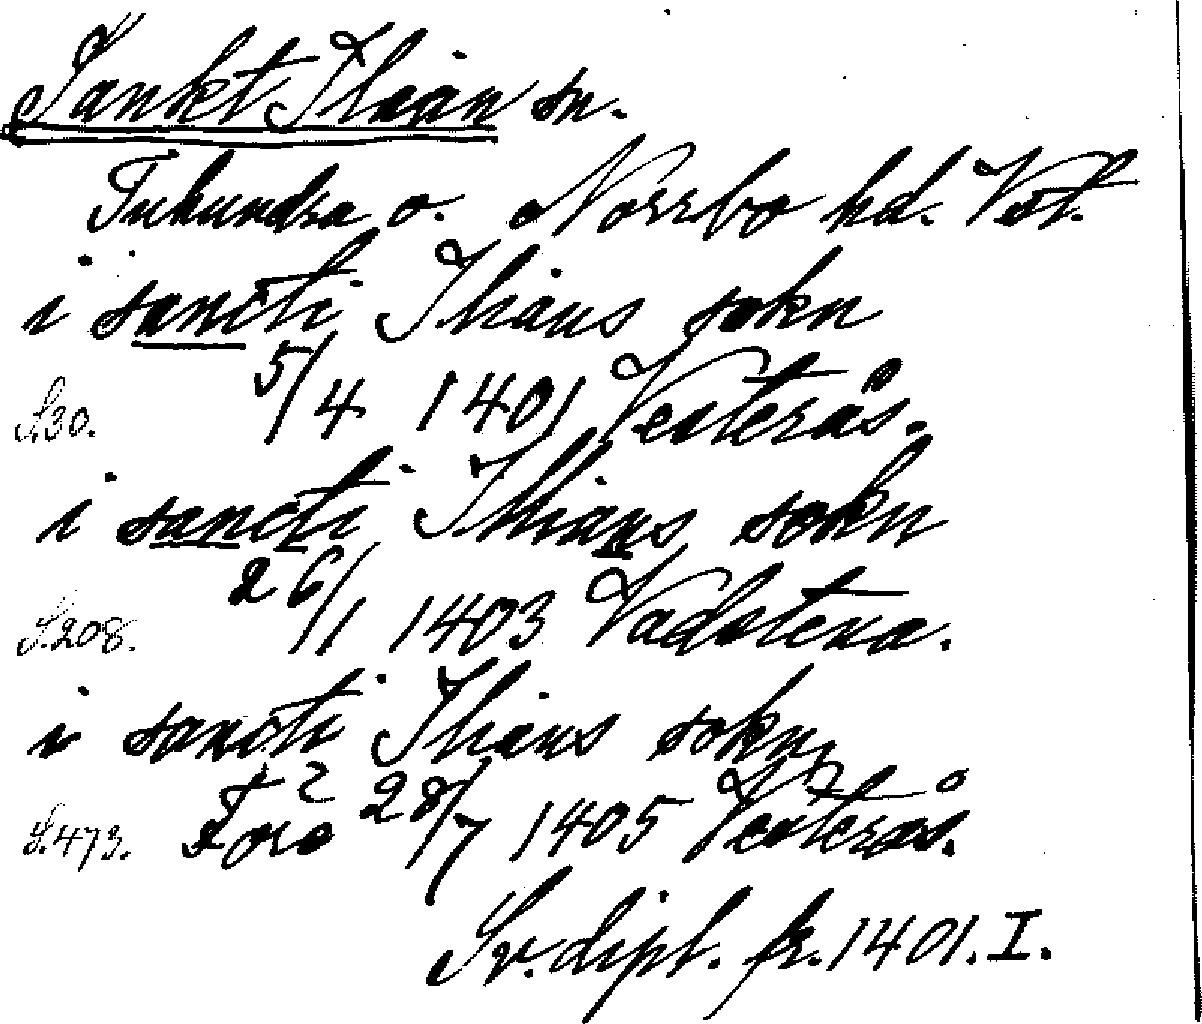 Sankt Ilian sn.
Tuhundra o. Norrbo hd. Vst.
i sancti Ilians sokn
S.30. 5/4 1401 Vesterås.
i sancti Illians sokn
S.208. 26/1 1403 Vadstena.
i sancti Ilians sokn
S.473. Före 28/7 1405 Vesterås.
Sv. dipl. fr. 1401. I.